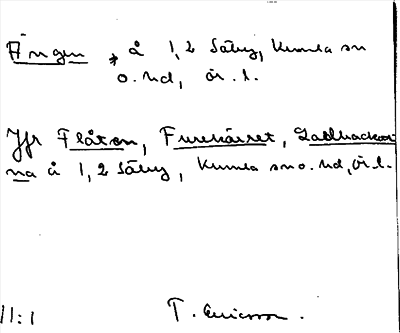 Ängen * å 1,2 Säby, Kumla sn
o. hd, ör. l.
Jfr Flåten, Furekärret, Ladubackor
na å 1,2 Säby, Kumla sn o. hd, ör. l.
11:1 T. Ericsson.